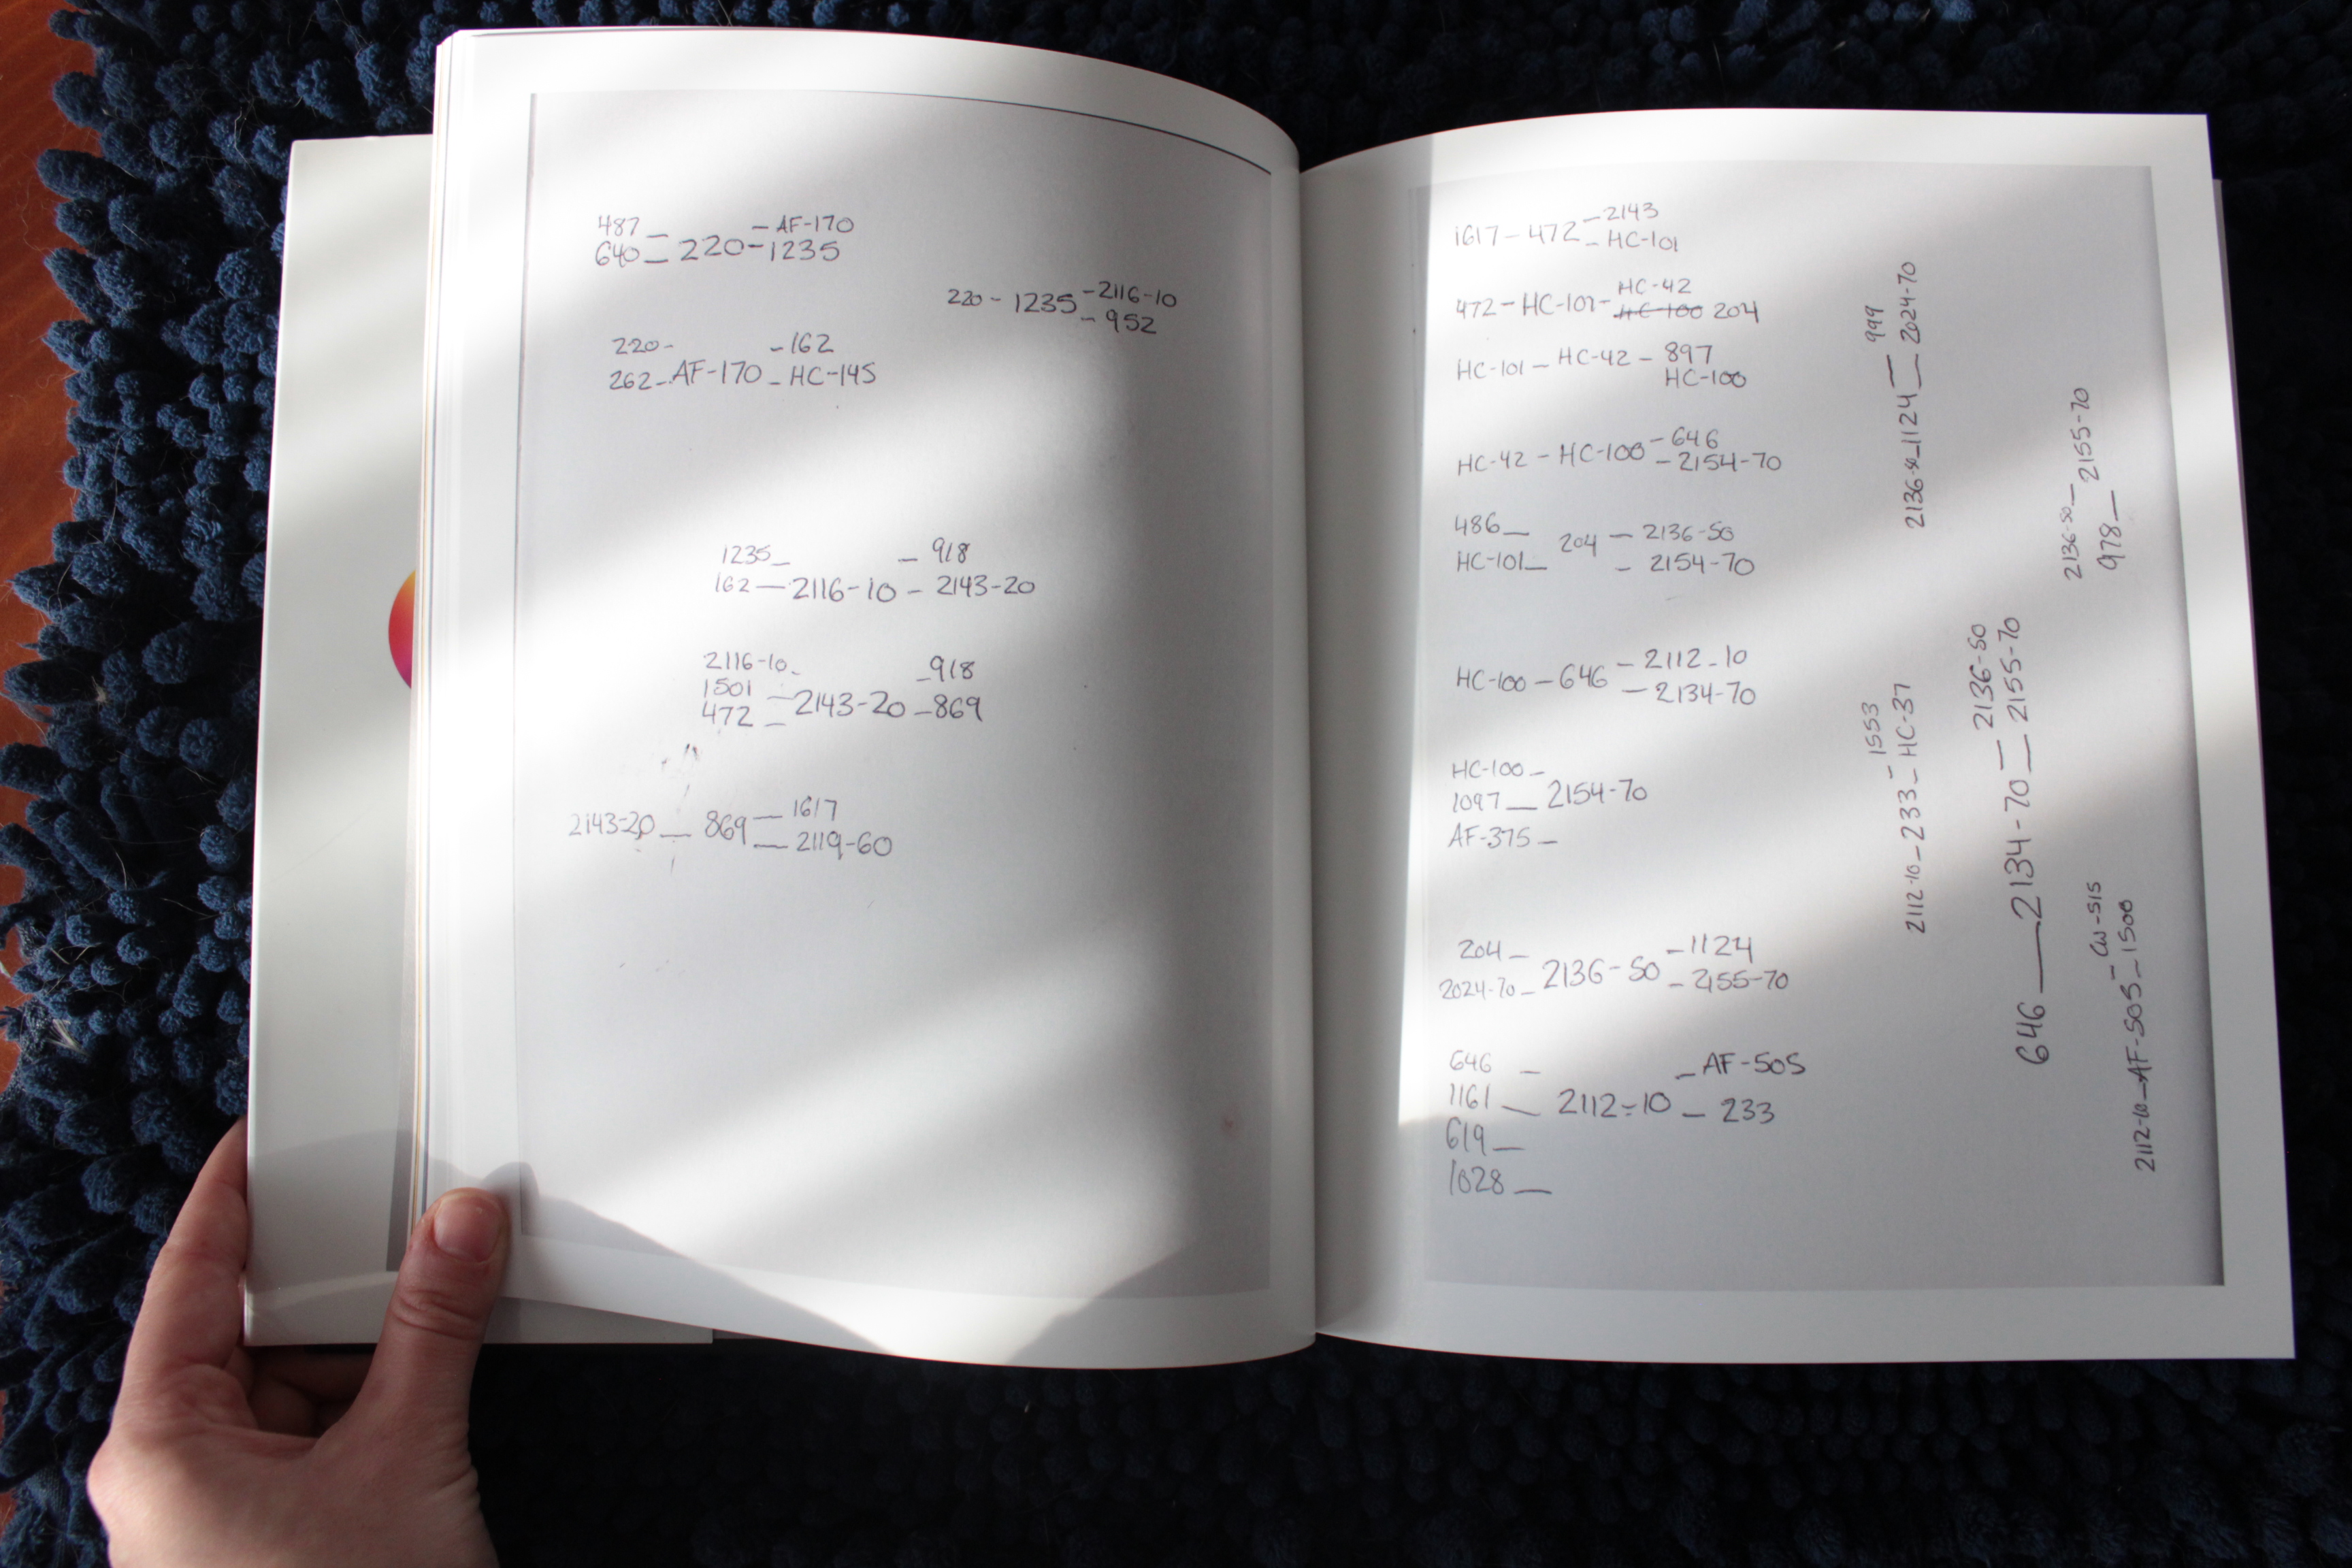 487 — – AF-170
640 — 220 – 1235
220 – 1235 – 2116-10
– 952
220 – – 162
262 – AF-170 – HC-145
1235 – – 918
162 — 2116-10 – 2143-20
2116-10 – – 918
1501 —
472 – 2143-20 – 869
2143-20 — 869 — 1617
— 2119-60
1617 – 472 – 2143
– HC-101
472 – HC-101 – HC-42
HC-100 204
HC-101 – HC-42 – 897
HC-100
HC-42 – HC-100 – 646
– 2154-70
486 — 204 — 2136-50
HC-101 — – 2154-70
HC-100 – 646 – 2112-10
— 2134-70
HC-100 –
1097 — 2154-70
AF-375 –
204 – – 1124
2024-70 – 2136-50 – 2155-70
646 – – AF-505
1161 — 2112-10 – 233
619 —
1028 —
— 999
2136-50 – 1124 — 2024-70
– 1553
2112-10 – 233 – HC-37
— 2136-50
646 — 2134-70 — 2155-70
2136-50 – 2155-70
978 —
– CW-515
2112-10 – AF-505 – 1500